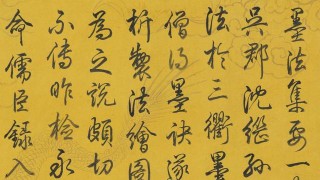 墨法集要一
吳郡沈繼孫
法於三衢墨
僧得墨訣遂
析製法繪圖
為之說頗切
不傳昨檢永
命儒臣録入